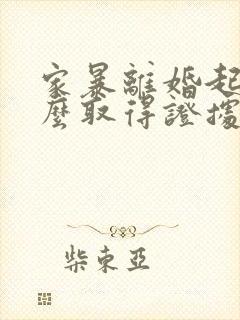 家暴離婚起
麼取得證據
柴東亞